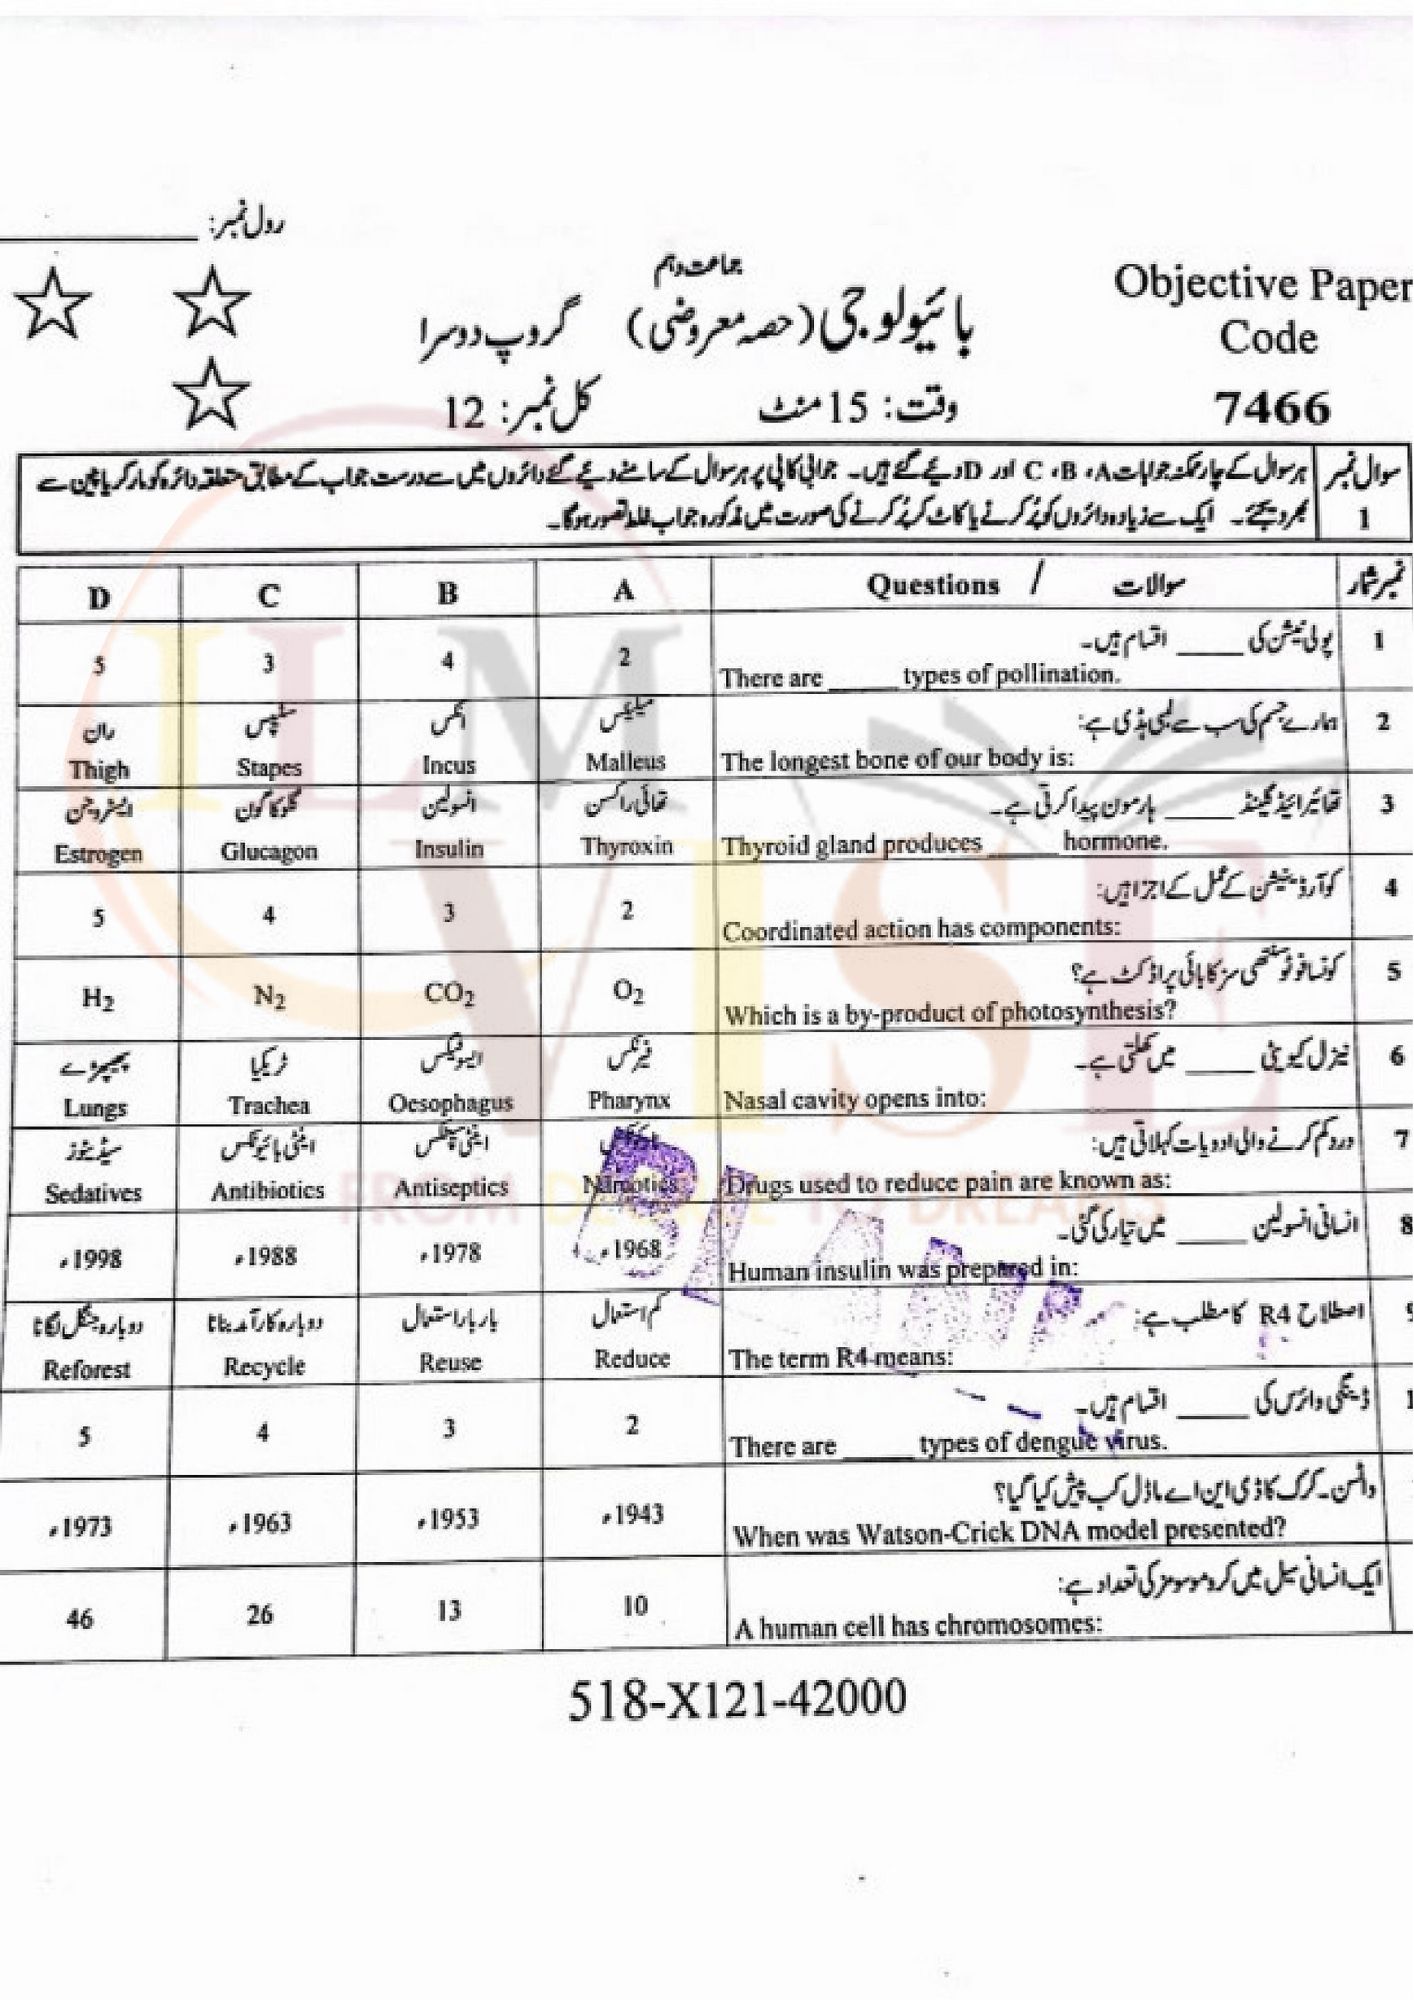 رول نمبر: __________
جماعت دہم
Objective Paper
Code
7466
بائیولوجی (حصہ معروضی) گروپ دوسرا
وقت: 15 منٹ کل نمبر: 12
سوال نمبر 1
ہر سوال کے چار ممکنہ جوابات A، B، C اور D دیئے گئے ہیں۔ جوابی کاپی پر ہر سوال کے سامنے دیئے گئے دائروں میں سے درست جواب کے مطابق متعلقہ دائرہ کو مارکر یا پین سے
بھر دیجئے۔ ایک سے زیادہ دائروں کو پُر کرنے یا کاٹ کر پُر کرنے کی صورت میں مذکورہ جواب غلط تصور ہوگا۔
نمبر شمار سوالات / Questions A B C D
1 پولی نیشن کی _____ اقسام ہیں۔
There are _____ types of pollination.
2 4 3 5
2 ہمارے جسم کی سب سے لمبی ہڈی ہے:
The longest bone of our body is:
میلیئس انکس سٹیپس ران
Malleus Incus Stapes Thigh
3 تھائیرائیڈ گلینڈ _____ ہارمون پیدا کرتی ہے۔
Thyroid gland produces _____ hormone.
تھائی راکسن انسولین گلوکاگون ایسٹروجن
Thyroxin Insulin Glucagon Estrogen
4 کوآرڈینیشن کے عمل کے اجزا ہیں:
Coordinated action has components:
2 3 4 5
5 کونسا فوٹوسنتھی سز کا بائی پراڈکٹ ہے؟
Which is a by-product of photosynthesis?
O2 CO2 N2 H2
6 نیزل کیویٹی _____ میں کھلتی ہے۔
Nasal cavity opens into:
فیرنکس ایسوفیگس ٹریکیا پھیپھڑے
Pharynx Oesophagus Trachea Lungs
7 درد کم کرنے والی ادویات کہلاتی ہیں:
Drugs used to reduce pain are known as:
اینٹی سیپٹکس اینٹی بائیوٹکس سیڈیٹوز
Narcotics Antiseptics Antibiotics Sedatives
8 انسانی انسولین _____ میں تیار کی گئی۔
Human insulin was prepared in:
1968ء 1978ء 1988ء 1998ء
اصطلاح R4 کا مطلب ہے:
The term R4 means:
کم استعمال بار بار استعمال دوبارہ کارآمد بنانا دوبارہ جنگل لگانا
Reduce Reuse Recycle Reforest
1 ڈینگی وائرس کی _____ اقسام ہیں۔
There are _____ types of dengue virus.
2 3 4 5
واٹسن۔کرک کا ڈی این اے ماڈل کب پیش کیا گیا؟
When was Watson-Crick DNA model presented?
1943ء 1953ء 1963ء 1973ء
ایک انسانی سیل میں کروموسومز کی تعداد ہے:
A human cell has chromosomes:
10 13 26 46
518-X121-42000
ILM
VISE